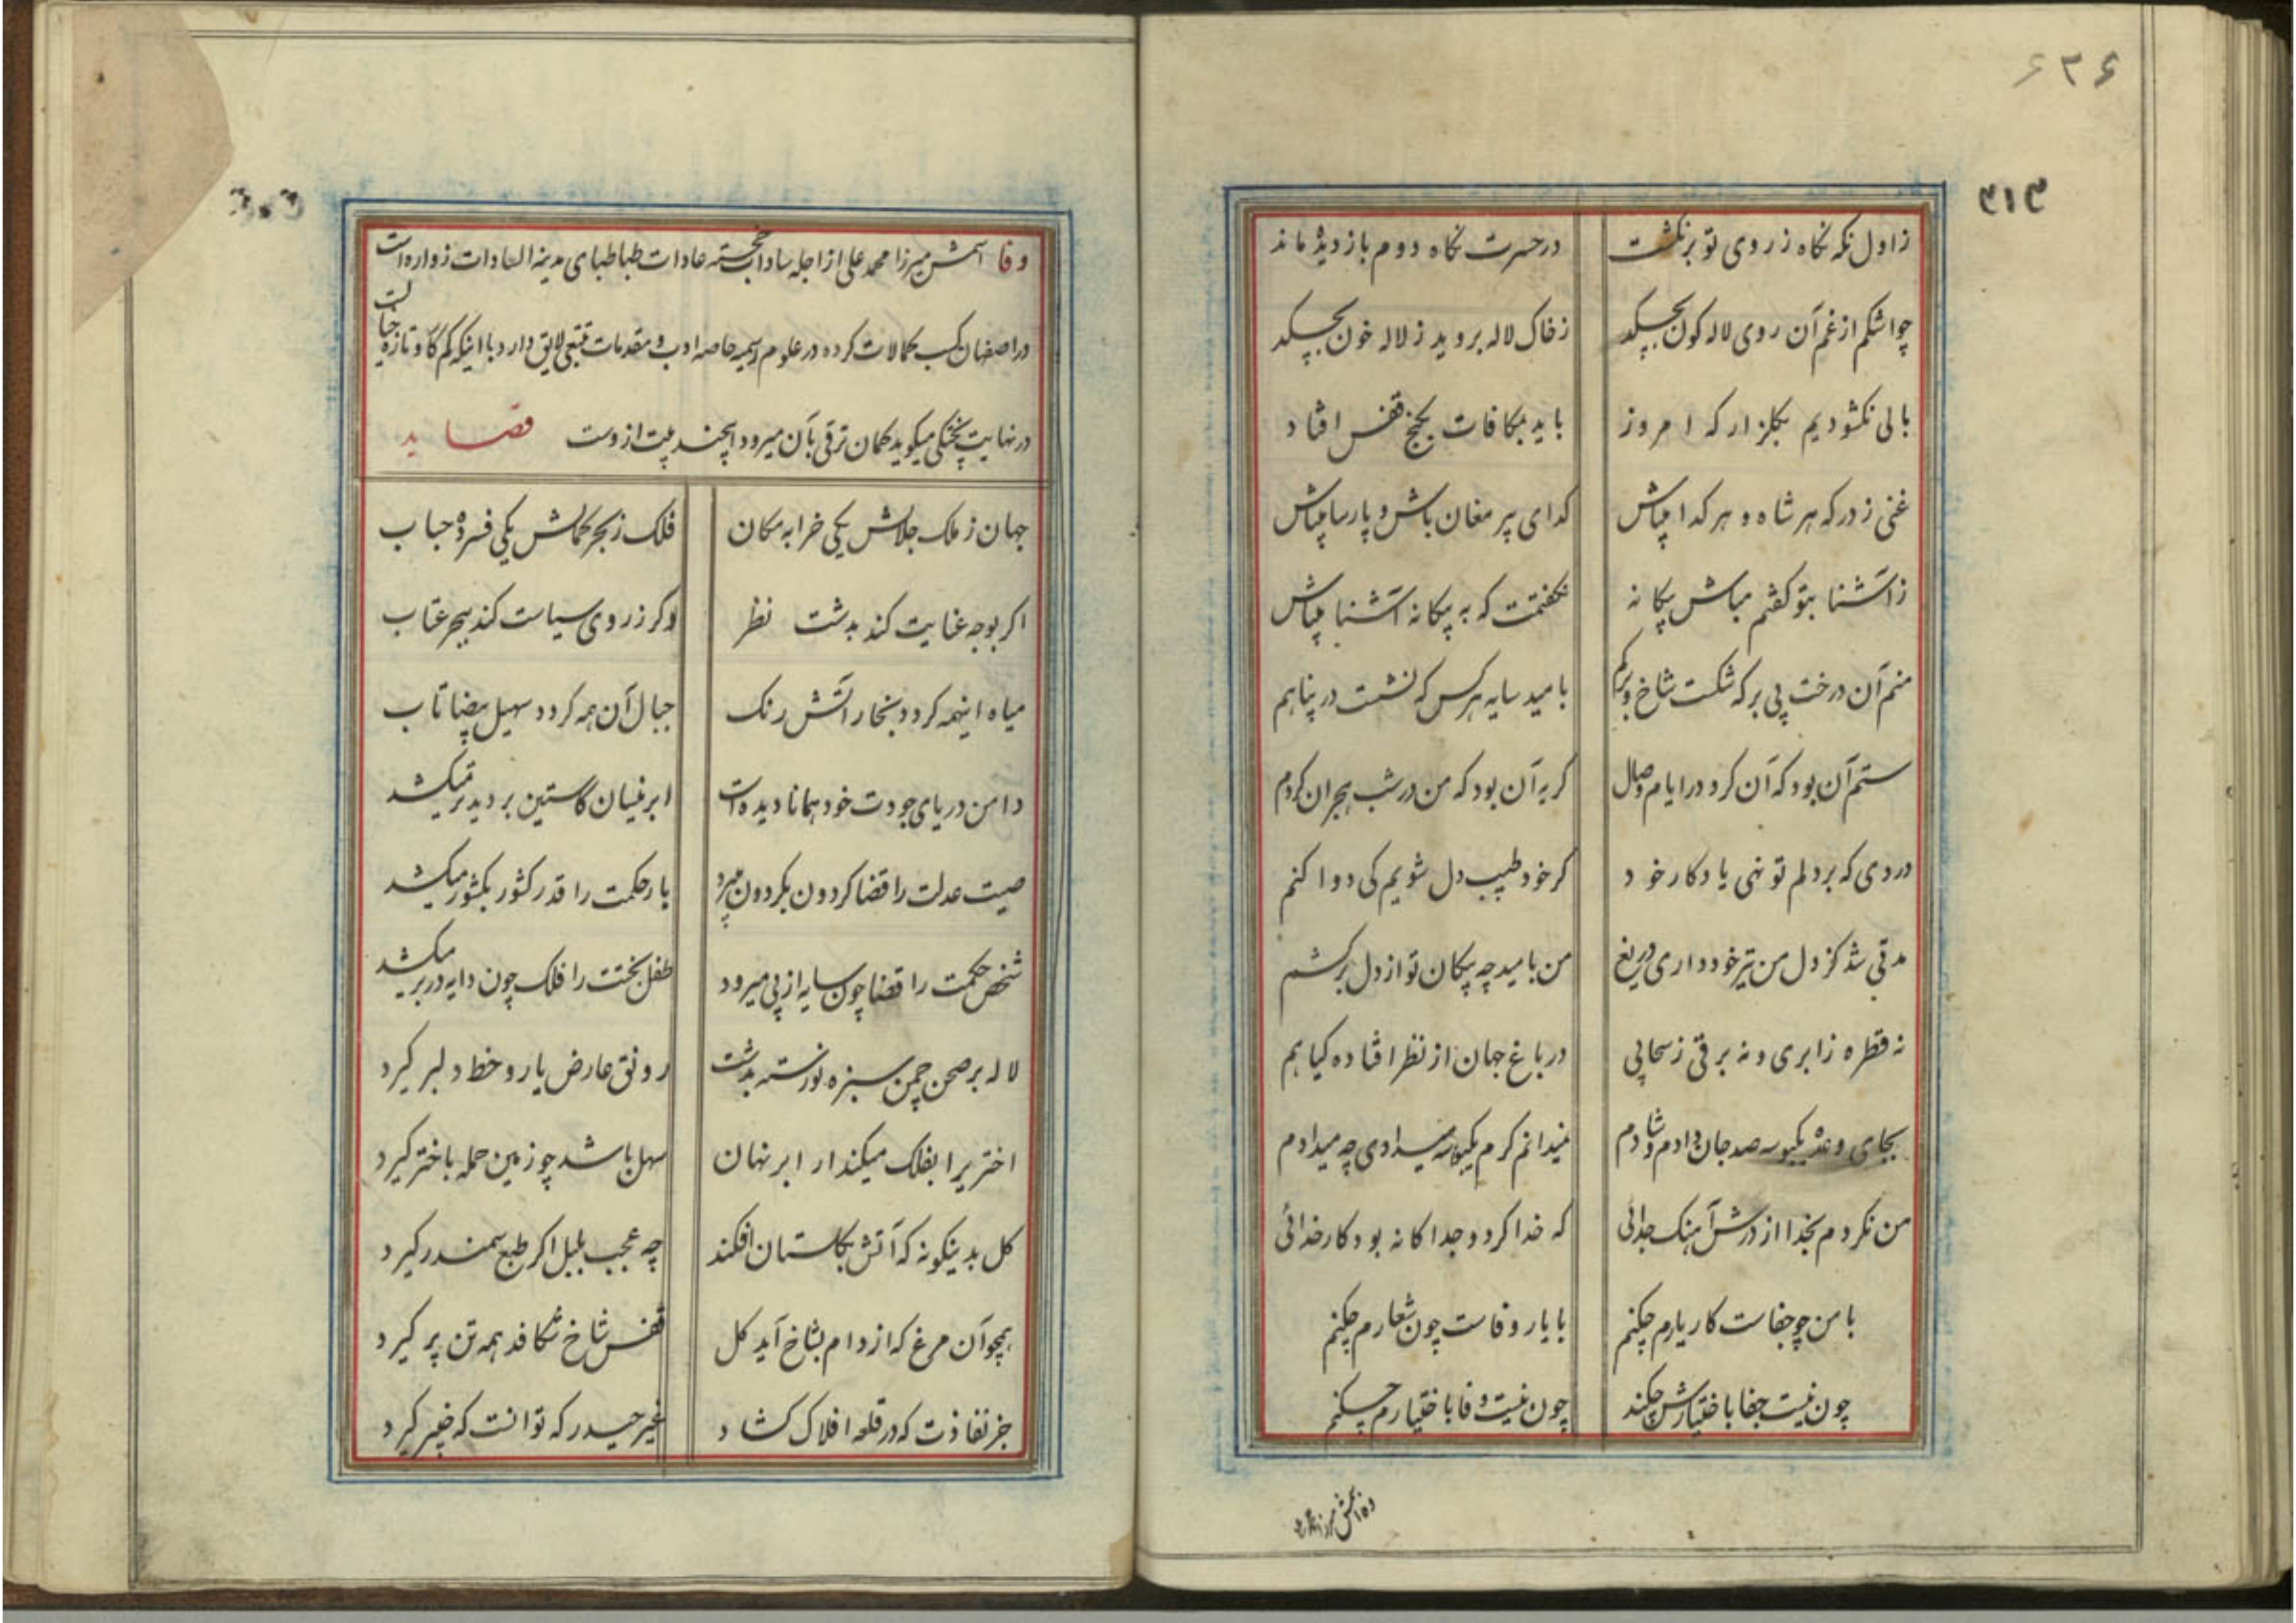 ۶۲۶
۳۱۳
ز اول نگه نگاه ز روی تو برنگشت در حسرت نگاه دوم باز دیده ماند
چو اشکم از غم آن روی لاله کون بچکد ز خاک لاله بروید ز لاله خون بچکد
بالی نکشودیم بکلزار که امروز باید بمکافات بکنج قفس افتاد
غنی ز درکه هر شاه و هر کدا میباش کدای پیر مغان باش و پارسا میباش
ز آشنا بتو کفتم مباش بیکانه نکفتمت که به بیکانه آشنا میباش
منم آن درخت بی بر که شکست شاخ و برکم بامید سایه هر کس که نشست در پناهم
ستم آن بود که آن کرد در ایام وصال کریه آن بود که من در شب هجران کردم
دردی که بر دلم تو نهی یادکار خود کر خود طبیب دل شویم کی دوا کنم
مدتی شد کز دل من تیر خود داری دریغ من بامید چه پیکان تو از دل برکشم
نه قطره ز ابری و نه برقی ز سحابی در باغ جهان از نظر افتاده کیاهم
بجای وعده یکبوسه صد جان دادم و شادم نمیدانم کرم یکبوسه میدادی چه میدادم
من نکردم بخدا از درش آهنک جدائی که خدا کرد و جداکانه بود کار خدائی
با من چو جفاست کار یارم چکنم با یار وفاست چون شعارم چکنم
چون نیست جفا باختیارش چکند چون نیست وفا باختیارم چکنم
وفا اسمش میرزا محمد علی از اجله سادات خجسته عادات طباطبای مدینة السادات زواره است
در اصفهان کسب کمالات کرده در علوم رسمیه خاصه ادب و مقدمات تتبعی لایق دارد با اینکه کم کو و تازه خیالست
در نهایت پختکی میکوید کمان ترقی بآن میرود اینچند بیت ازوست قصاید
جهان ز ملک جلالش یکی خرابه مکان فلک ز بحر کمالش یکی فسرده حباب
اکر بوجه عنایت کند بدشت نظر وکر ز روی سیاست کند ببحر عتاب
میاه اینهمه کردد بخار آتش رنک جبال آن همه کردد سهیل بیضا تاب
دامن دریای جودت خود همانا دیده است ابر نیسان کاستین بر دیده تر میکشد
صیت عدلت را قضا کردون بکردون میبرد بار حکمت را قدر کشور بکشور میکشد
شخص حکمت را قضا چون سایه از پی میرود طفل بختت را فلک چون دایه در بر میکشد
لاله بر صحن چمن سبزه نورسته بدشت رونق عارض یار و خط دلبر کیرد
اختریرا بفلک میکند ار ابر نهان سهل باشد چو زمین جمله باختر کیرد
کل بدینکونه که آتش بکلستان افکند چه عجب بلبل اکر طبع سمندر کیرد
همچو آن مرغ که از دام بشاخ آید کل قفس شاخ شکافد همه تن پر کیرد
جز نفاذت که در قلعه افلاک کشاد غیر حیدر که توانست که خیبر کیرد